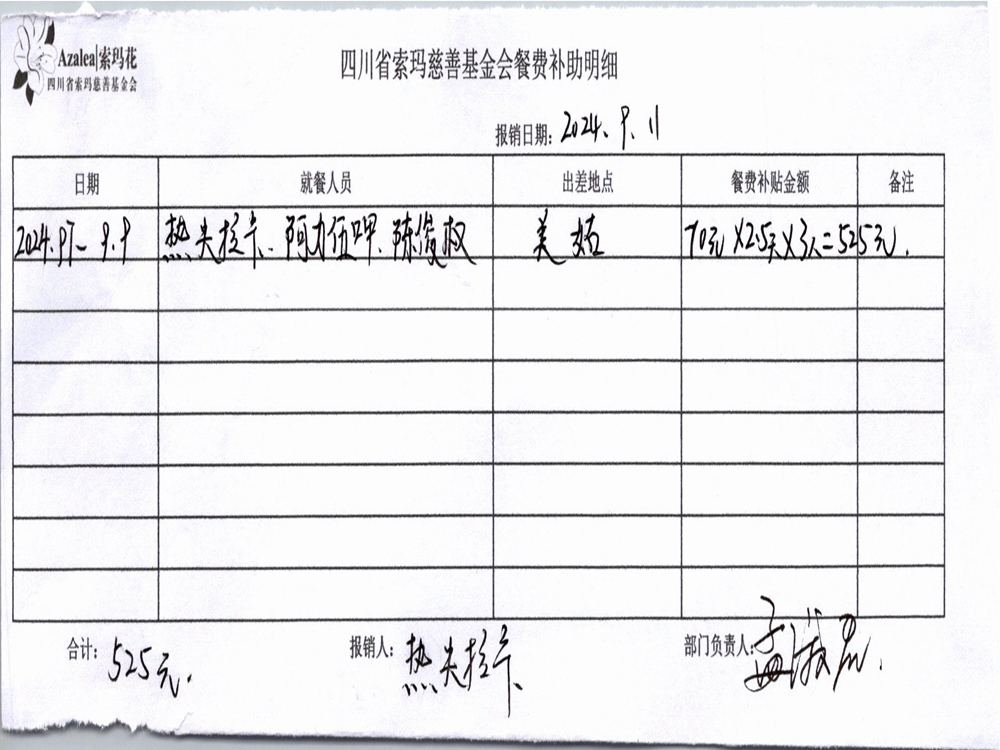 Azalea|索玛花
四川省索玛慈善基金会
四川省索玛慈善基金会餐费补助明细
报销日期: 2024. 9. 11
日期 就餐人员 出差地点 餐费补贴金额 备注
2024.9.7- 9.9 热夫拉卡、阿力伍呷、陈俊权 美姑 70元×2.5天×3人=525元.
合计: 525元. 报销人: 热夫拉卡 部门负责人: